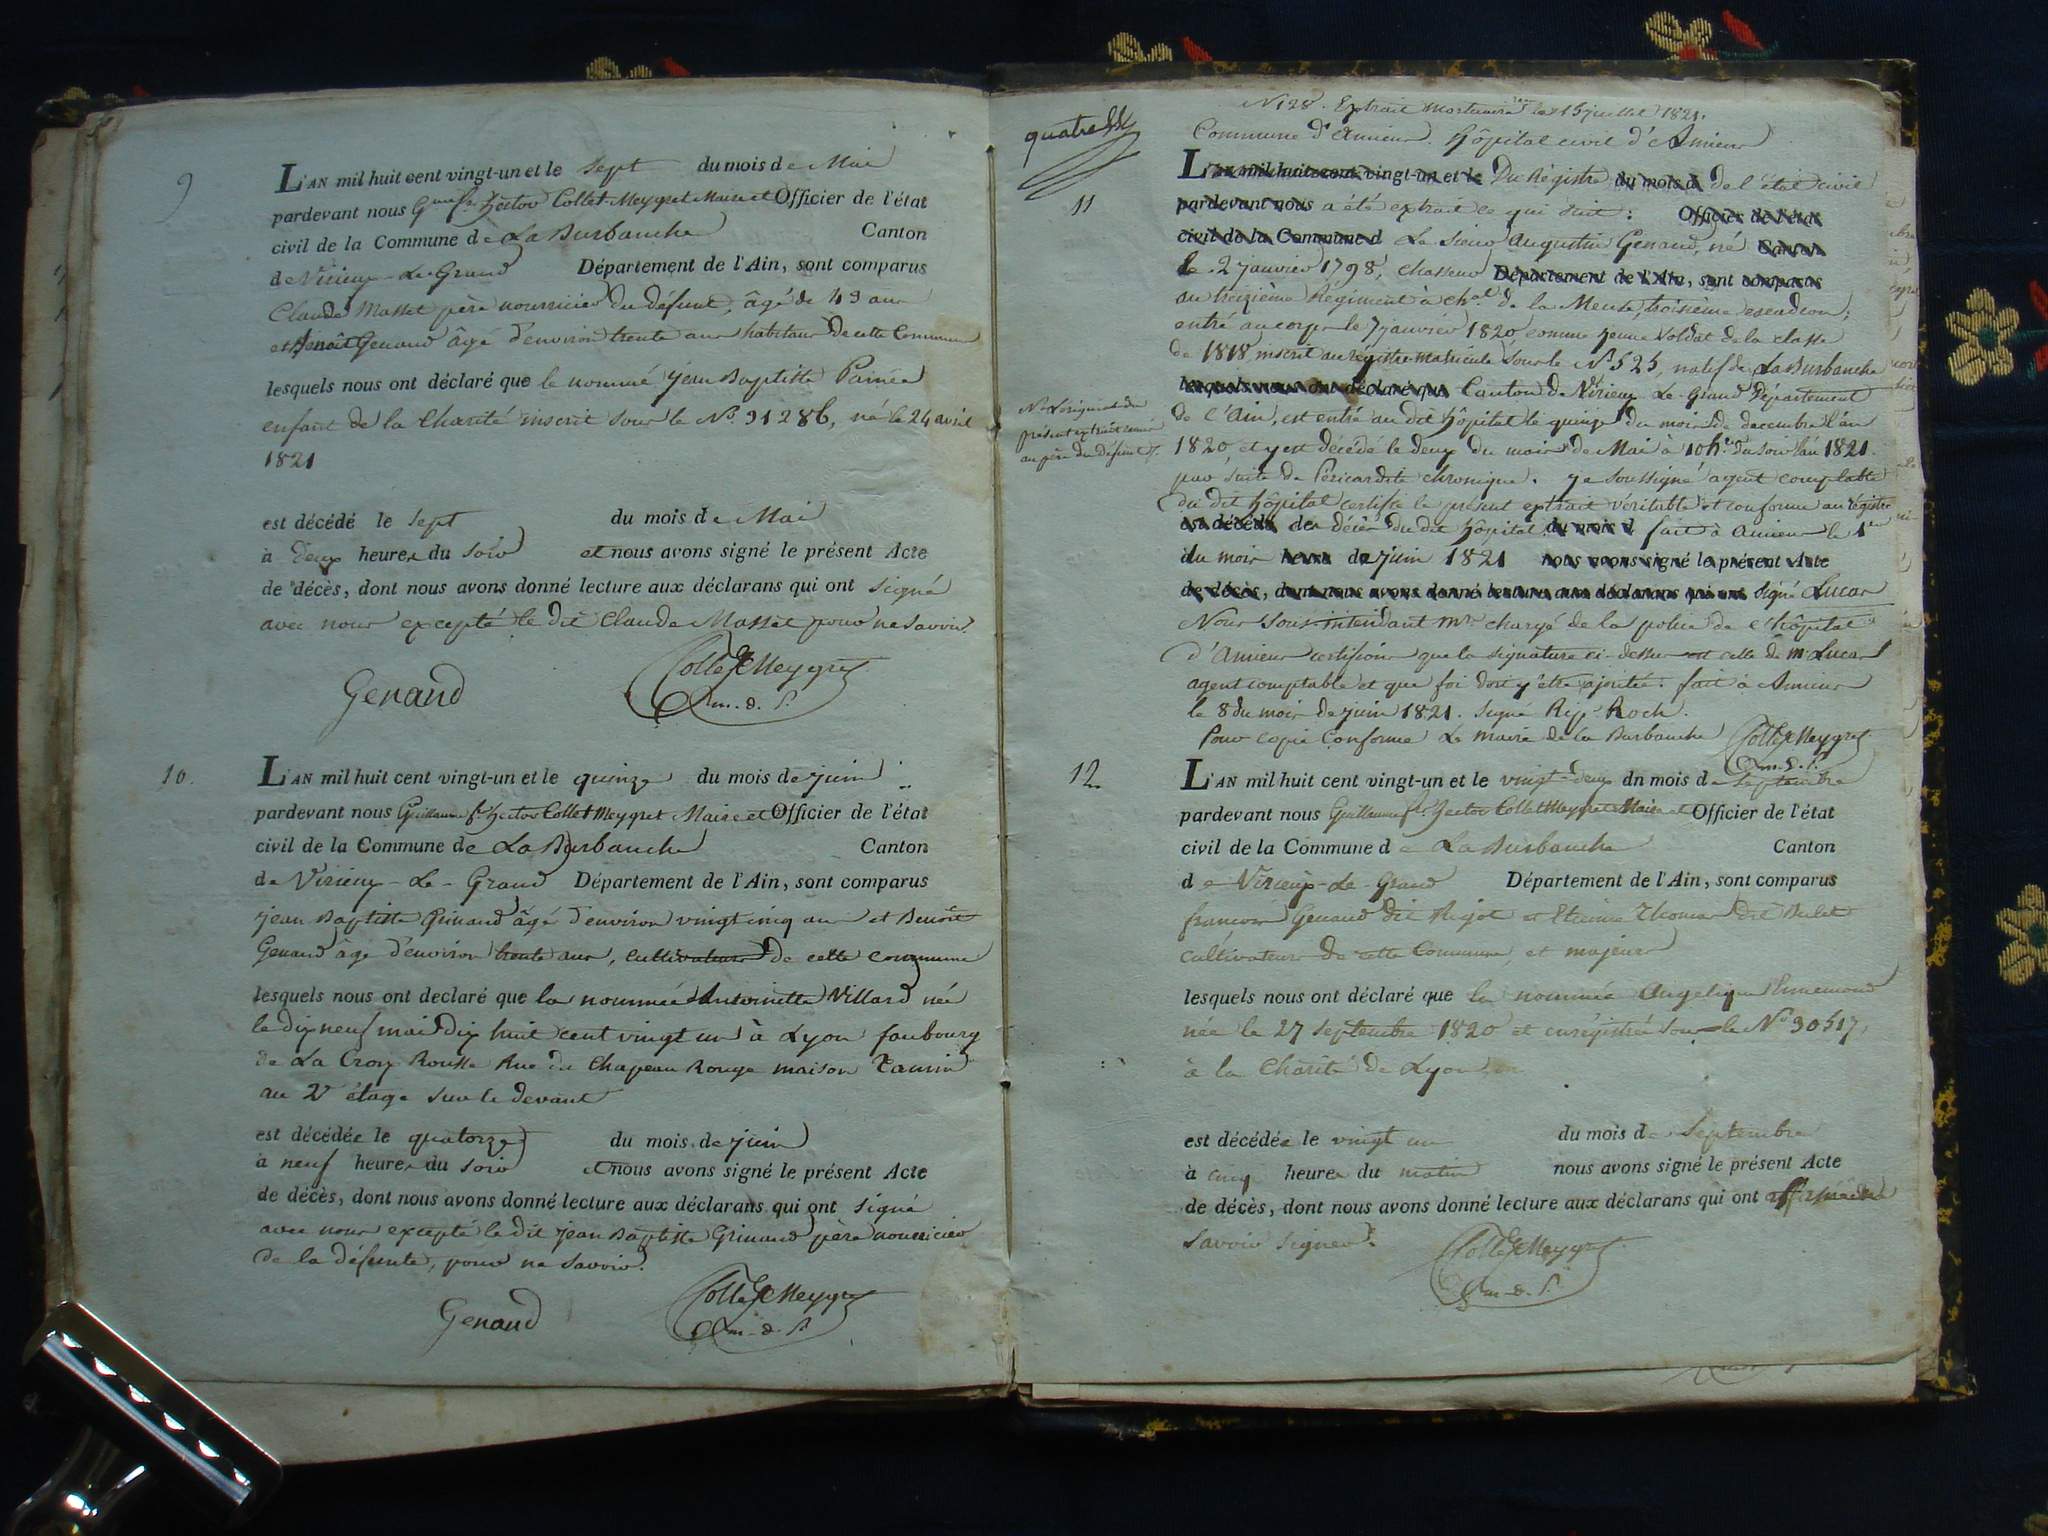 9
L'AN mil huit cent vingt-un et le sept du mois de Mai
pardevant nous Hector Collet-Meygret Maire et Officier de l'état
civil de la Commune de La Burbanche Canton
de Virieux-Le-Grand Département de l'Ain, sont comparus
Claude Masset père nourricier du défunt, âgé de 49 ans
et Benoît Genaud âgé d'environ trente ans habitans de cette Commune
lesquels nous ont déclaré que le nommé jean Baptiste
enfant de la Charité inscrit sous le No. 31286, né le 24 avril
1821
est décédé le sept du mois de Mai
à deux heures du soir et nous avons signé le présent Acte
de décès, dont nous avons donné lecture aux déclarans qui ont signé
avec nous excepté le dit Claude Masset pour ne savoir.
Genaud Collet Meygret
m. d. S.
10.
L'AN mil huit cent vingt-un et le quinze du mois de juin
pardevant nous Guillaume fs. Hector Collet Meygret Maire et Officier de l'état
civil de la Commune de La Burbanche Canton
de Virieux-Le-Grand Département de l'Ain, sont comparus
jean Baptiste Grinand âgé d'environ vingt cinq ans et Benoît
Genaud âgé d'environ trente ans, cultivateurs de cette commune
lesquels nous ont declaré que la nommée Antoinette Villard née
le dix neuf mai dix huit cent vingt un à Lyon faubourg
de La Croix Rousse Rue du Chapeau Rouge maison
au 2e étage sur le devant
est décédée le quatorze du mois de juin
à neuf heures du soir et nous avons signé le présent Acte
de décès, dont nous avons donné lecture aux déclarans qui ont signé
avec nous excepté le dit jean Baptiste Grinand père nourricier
de la défunte, pour ne savoir.
Genaud Collet Meygret
m. d. S.
quatre
No 128. Extrait Mortuaire le 15 juillet 1821.
Commune d'Amiens. Hôpital civil d'Amiens
11
L'AN mil huit cent vingt-un et le Du Régistre du mois d de l'état civil
pardevant nous a été extrait ce qui suit: Officier de l'état
civil de la Commune d Le Sieur Augustin Genaud, né Canton
le 2 janvier 1798, chasseur Département de l'Ain, sont comparus
au treizième Régiment à chal de la Meuse, troisième escadron,
entré au corps le 7 janvier 1820 comme jeune soldat de la classe
de 1818 inscrit au régistre matricule sous le No 525, natif de La Burbanche
lesquels nous ont déclaré que Canton de Virieux Le-Grand Département
de l'Ain, est entré au dit hôpital le quinze du mois de decembre l'an
1820, et y est décédé le deux du mois de Mai à 10 h. du soir l'an 1821
par suite de Péricardite chronique. je soussigné agent comptable
du dit hôpital certifie le présent extrait véritable et conforme au régistre
est décédé des décès du dit hôpital du mois d fait à Amiens le 1er
du mois heure de juin 1821 nous avons signé le présent Acte
de décès, dont nous avons donné lecture aux déclarans qui ont signé Lucas
Nous Sous-intendant mre chargé de la police de l'hôpital
d'Amiens certifions que la signature ci-dessus est celle de Mr Lucas
agent comptable et que foi doit y être ajoutée. fait à Amiens
le 8 du mois de juin 1821. signé Roch.
Pour copie Conforme Le Maire de la Burbanche Collet Meygret
m. d. S.
Na. L'original du
présent extrait remis
au père du défunt
12
L'AN mil huit cent vingt-un et le vingt-deux dn mois de Septembre
pardevant nous Guillaume fs. Hector Collet Meygret Maire et Officier de l'état
civil de la Commune de La Burbanche Canton
de Virieux-Le-Grand Département de l'Ain, sont comparus
françois Genaud dit et Etienne Thomas dit
cultivateurs de cette Commune, et majeurs
lesquels nous ont déclaré que la nommée Angelique
née le 27 Septembre 1820 et enrégistrée sous le No 30517,
à la Charité de Lyon
est décédée le vingt un du mois de Septembre
à cinq heures du matin nous avons signé le présent Acte
de décès, dont nous avons donné lecture aux déclarans qui ont
savoir signer.
Collet Meygret
m. d. S.